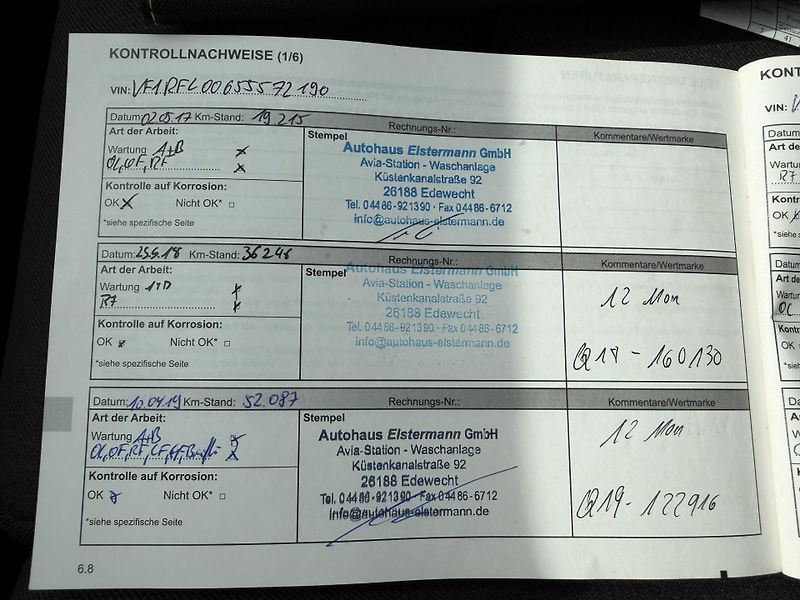 KONTROLLNACHWEISE (1/6)
VIN: VF1RFL00655572190
Datum: 02.05.17 Km-Stand: 19.215 Rechnungs-Nr.: Kommentare/Wertmarke
Art der Arbeit: Stempel
Wartung A+B x
ÖL, OF, RF x
Kontrolle auf Korrosion:
OK x Nicht OK* □
*siehe spezifische Seite
Autohaus Elstermann GmbH
Avia-Station - Waschanlage
Küstenkanalstraße 92
26188 Edewecht
Tel. 04486-921390 · Fax 04486-6712
info@autohaus-elstermann.de
Datum: 25.5.18 Km-Stand: 36246 Rechnungs-Nr.: Kommentare/Wertmarke
Art der Arbeit: Stempel
Wartung x
x
Kontrolle auf Korrosion:
OK x Nicht OK* □
*siehe spezifische Seite
Autohaus Elstermann GmbH
Avia-Station - Waschanlage
Küstenkanalstraße 92
26188 Edewecht
Tel. 04486-921390 · Fax 04486-6712
info@autohaus-elstermann.de
12 Mon
Q18 - 160130
Datum: 10.04.19 Km-Stand: 52.087 Rechnungs-Nr.: Kommentare/Wertmarke
Art der Arbeit: Stempel
Wartung A+B x
ÖL, OF, RF, x
Kontrolle auf Korrosion:
OK Nicht OK* □
*siehe spezifische Seite
Autohaus Elstermann GmbH
Avia-Station - Waschanlage
Küstenkanalstraße 92
26188 Edewecht
Tel. 04486-921390 · Fax 04486-6712
info@autohaus-elstermann.de
12 Mon
Q19 - 122916
6.8
KONT
VIN:
Datum
Art de
Wartu
R7
Kontro
OK
*siehe s
Datum
Art de
Wartun
Kontro
OK
*sieh